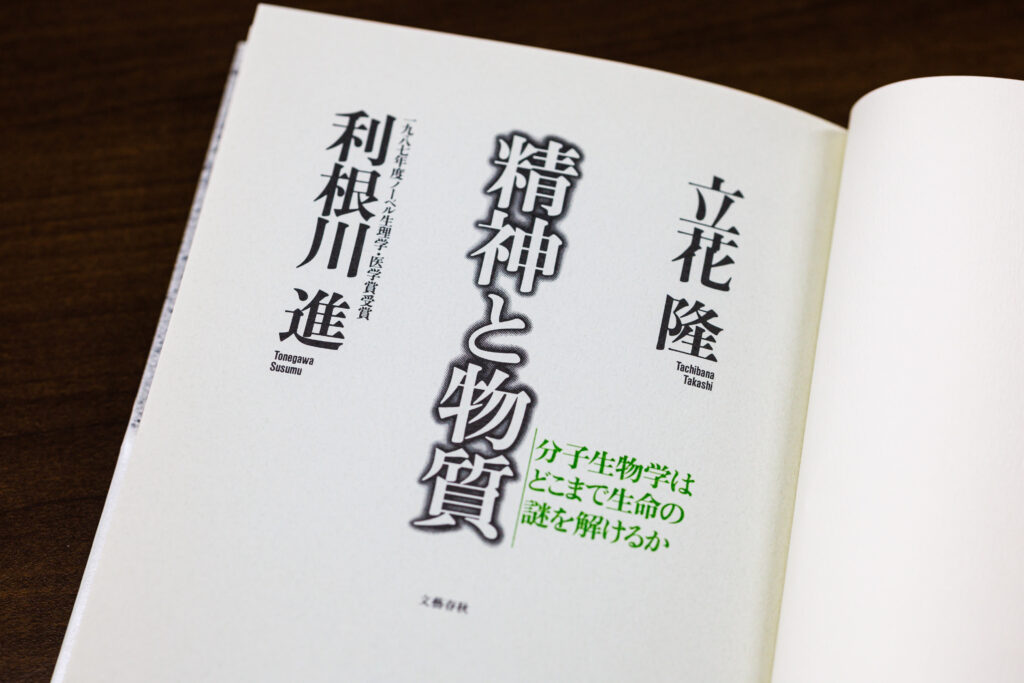 立花 隆
Tachibana
Takashi
精神と物質
分子生物学は
どこまで生命の
謎を解けるか
一九八七年度ノーベル生理学・医学賞受賞
利根川 進
Tonegawa
Susumu
文藝春秋